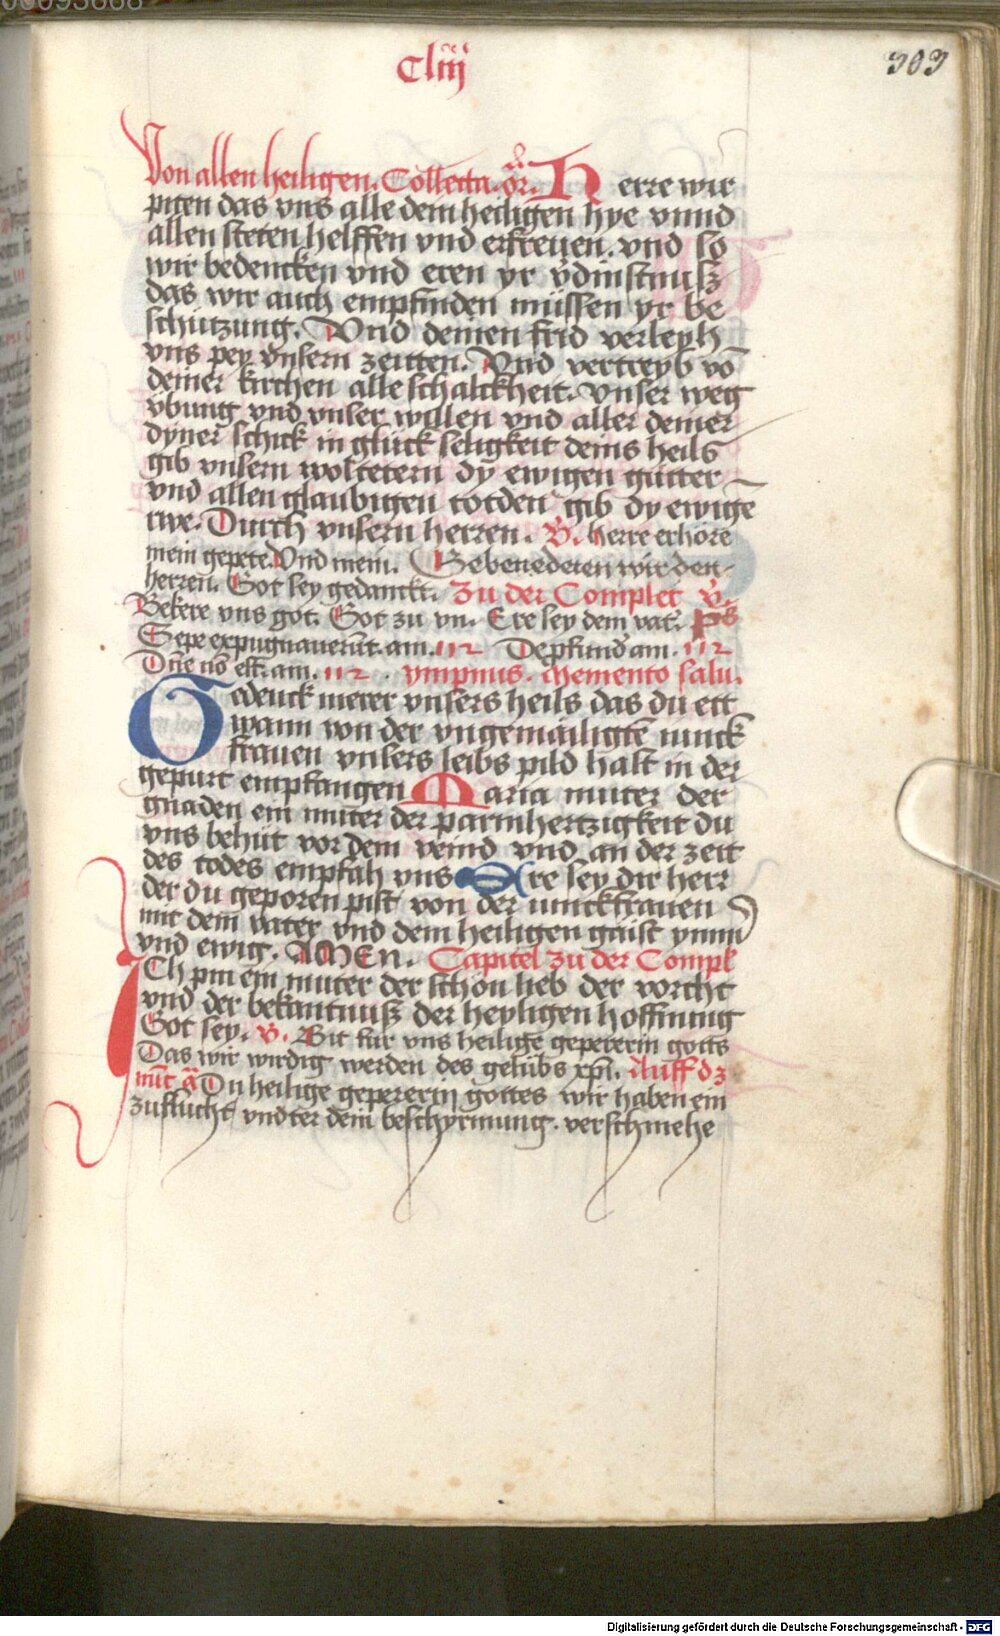 00093668
Cliij
303
Von allen heiligen. Collecta. or. Herre wir
piten das vns alle dein heiligen hye vnnd
allen steten helffen vnd erfreuen. vnd so
wir bedencken vnd eren yr v̄dinstnusz
das wir auch empfinden müssen yr be
schützung. Vnd deinen frid verleyh
vns pey vnsern zeitten. Vnd vertreyb vō
deiner kirchen alle schalckheit. Vnser weg
vbung vnd vnser willen vnd aller deiner
dyner schick in glück seligkeit deins heils
gib vnsern woltetern dy ewigen gütter
vnd allen glaubigen totden gib dy ewige
rwe. Durch vnsern herren. V. herre erhöre
mein gepete. Vnd mein. Gebenedeien wir den
herren. Got sey gedanckt. Zu der Complet v̄.
Bekere vns got. Got zu vn. Ere sey dem vat̄. ps
Sepe expugnauerūt. am. 112 De pfund am. 112
Dn̄e nō est. am. 112 . ympnus. Memento salu.
Gedenck merer vnsers heils das du ett
wann von der vngemailigtē iunck
frauen vnsers leibs pild hast in der
gepurt empfangen Maria muter der
gnaden ein muter der parmhertzigkeit du
vns behüt vor dem veind vnd an der zeit
des todes empfah vns Ere sey dir herr
der du geporen pist von der iunckfrauen
mit dem vater vnd dem heiligen gaist ymm
vnd ewig. AMEN. Capitel zu der Compl
ICh pin ein muter der schön lieb der vorcht
vnd der bekantnusz der heyligen hoffnung
Got sey. V. Bit für vns heilige gepererin gotts
Das wir wirdig werden des gelübs xp̄i. Auff dz
nūc ā Du heilige gepererin gottes wir haben ein
zuflucht vndter dein beschyrmung. verschmehe
Digitalisierung gefördert durch die Deutsche Forschungsgemeinschaft - DFG